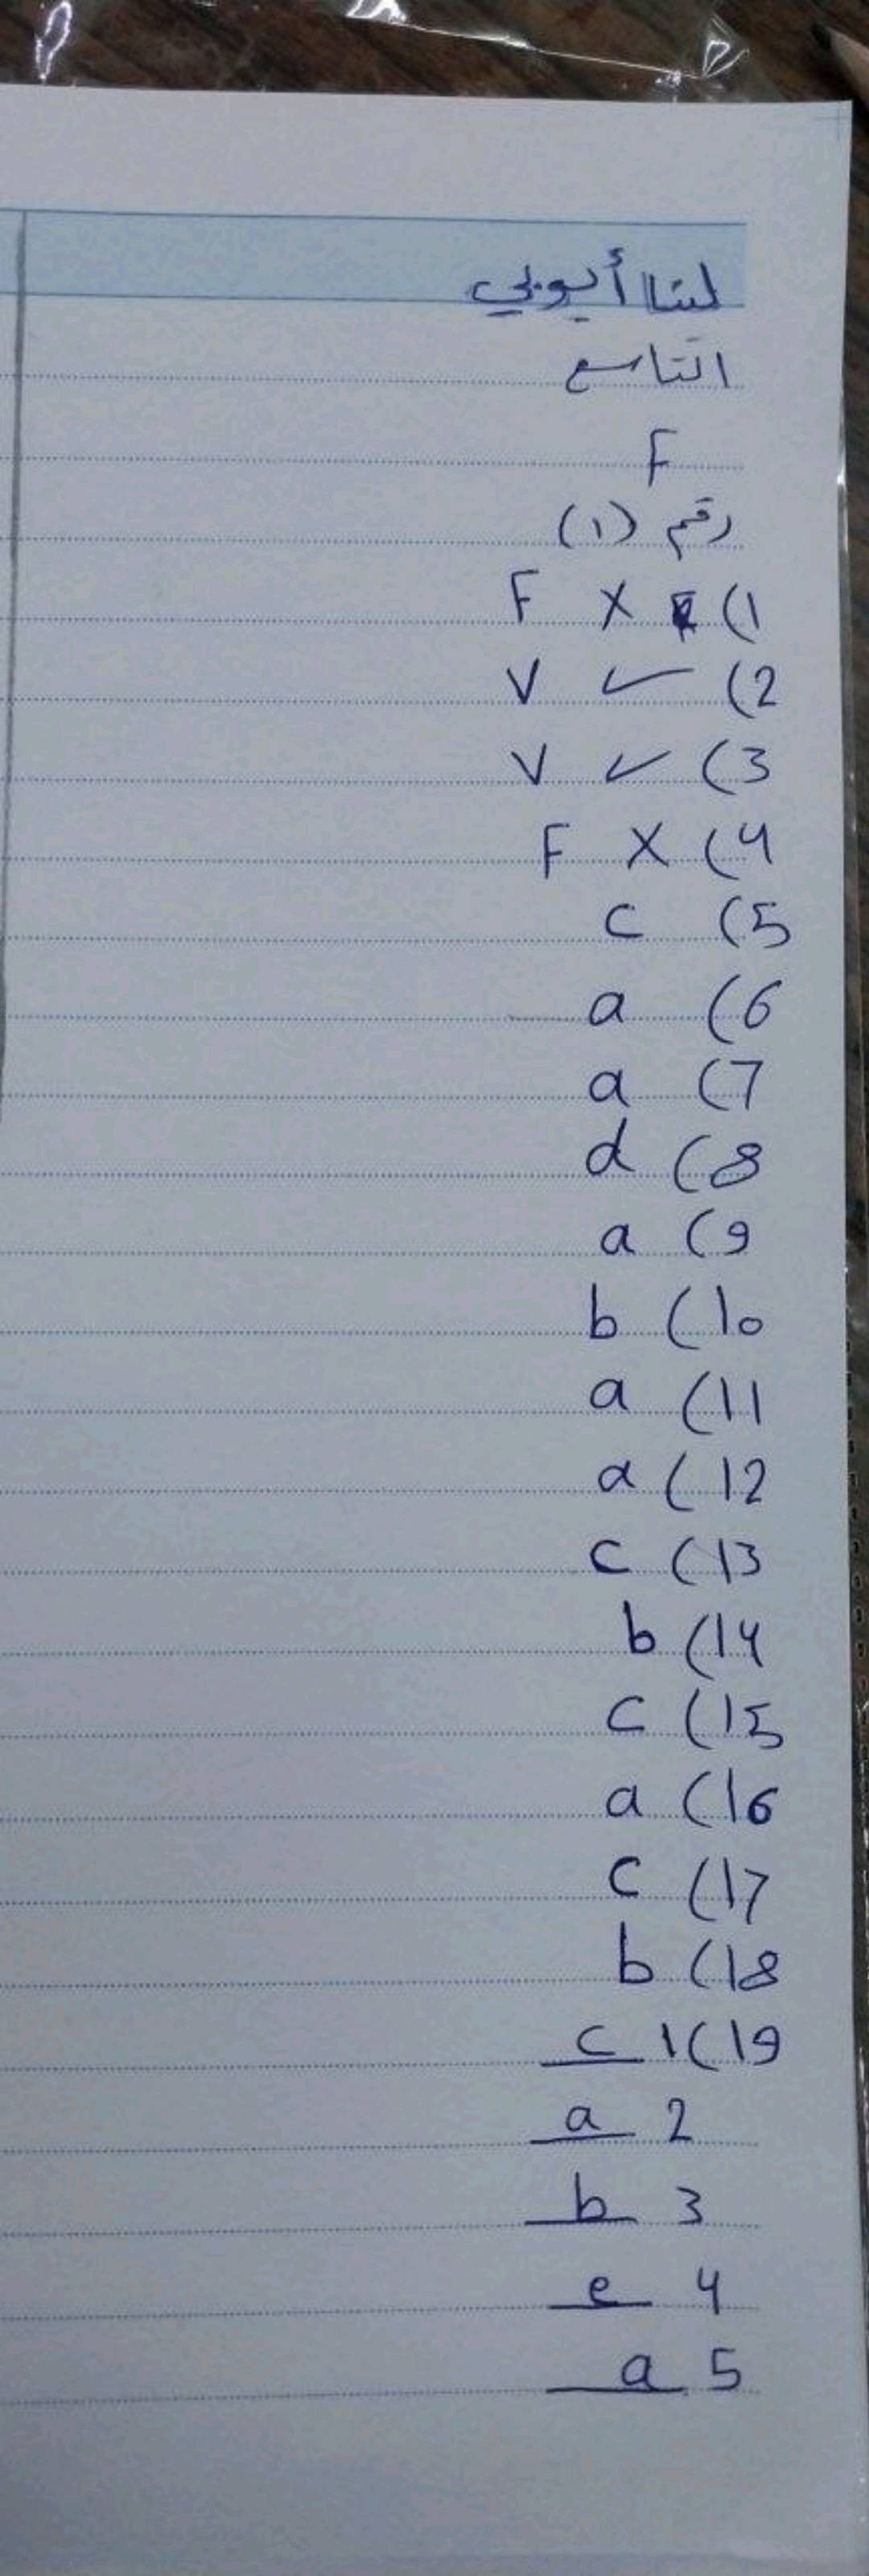 لينا أيوبي
التاسع
F
رقم (1)
1) X F
2) ✓ V
3) ✓ V
4) X F
5) c
6) a
7) a
8) d
9) a
10) b
11) a
12) a
13) c
14) b
15) c
16) a
17) c
18) b
19) 1 c
2 a
3 b
4 e
5 a